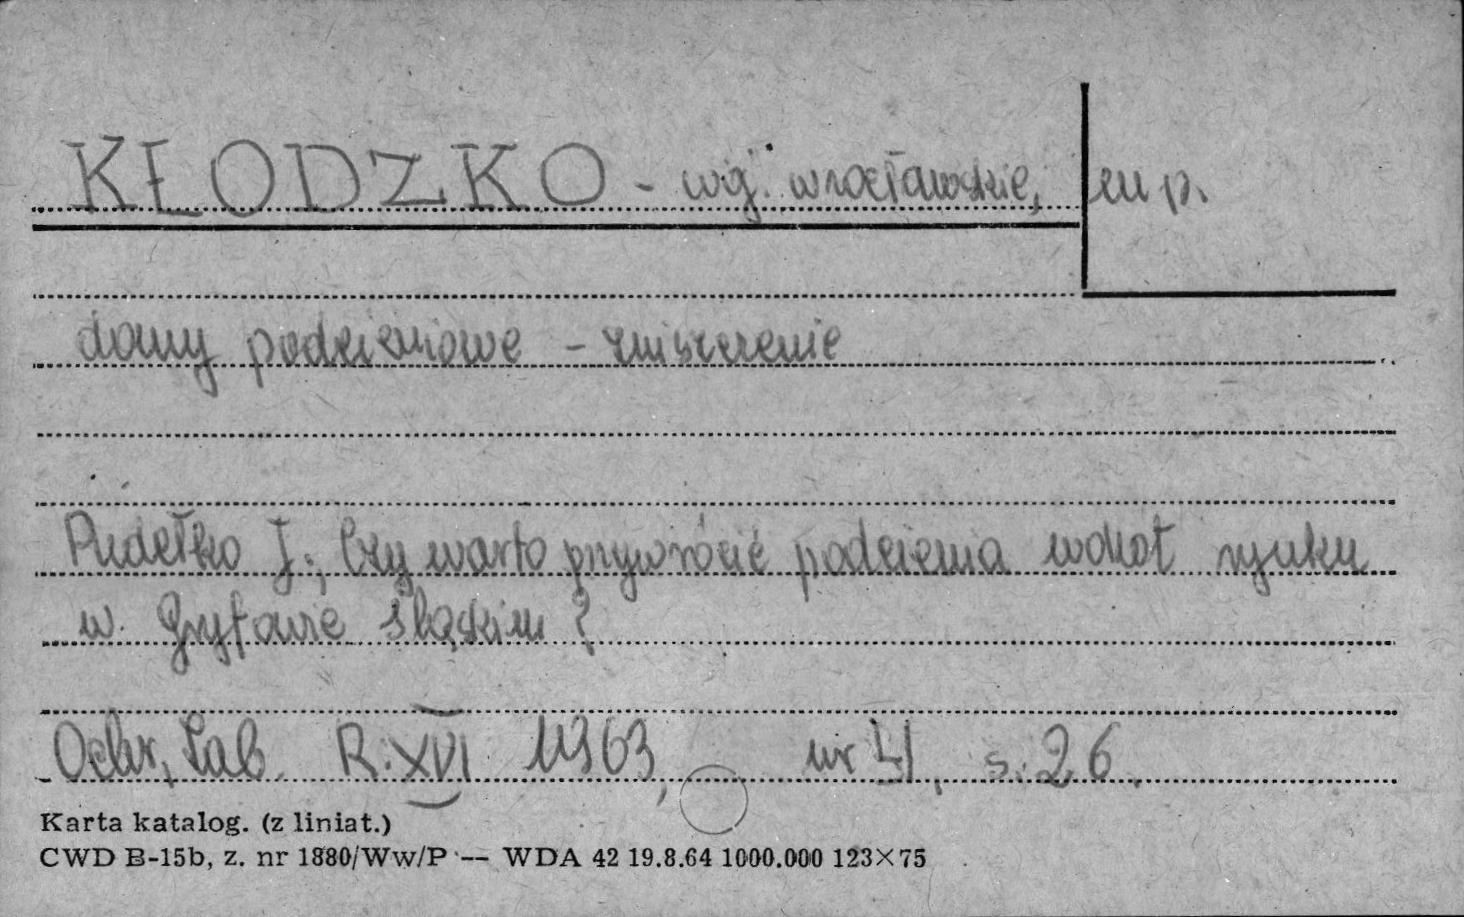 KŁODZKO - woj. wrocławskie, m p.
domy podcieniowe - zniszczenie
Pudełko J., Czy warto przywrócić podcienia wokół rynku
w Gryfowie Śląskim ?
Ochr. Zab. R. XVI 1963, nr 4, s. 26.
Karta katalog. (z liniat.)
CWD B-15b, z. nr 1880/Ww/P — WDA 42 19.8.64 1000.000 123×75